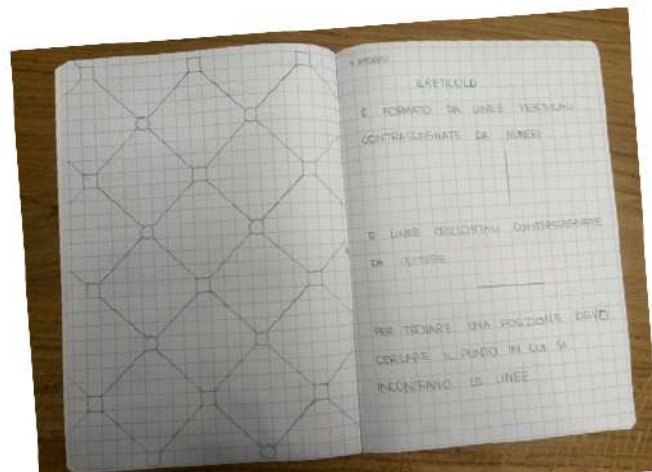 IL RETICOLO
È FORMATO DA LINEE VERTICALI
CONTRASSEGNATE DA NUMERI
E LINEE ORIZZONTALI CONTRASSEGNATE
DA LETTERE
PER TROVARE UNA POSIZIONE DEVO
CERCARE IL PUNTO IN CUI SI
INCONTRANO LE LINEE